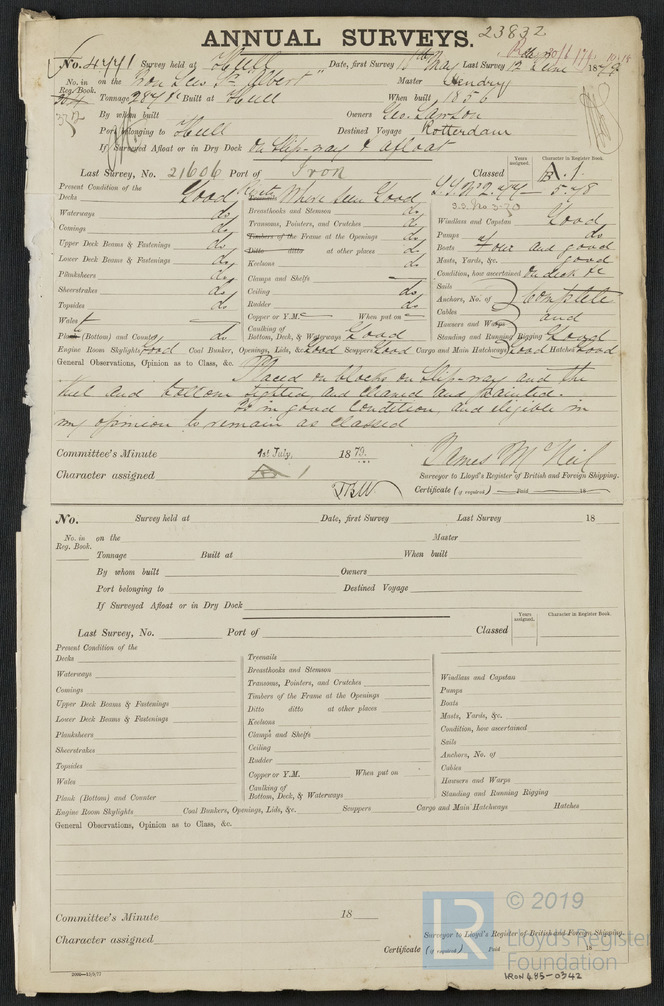 ANNUAL SURVEYS. 23832
No. 4441 Survey held at Hull Date, first Survey 15th May Last Survey 12 June 1879
No. in Reg. Book. on the Iron Scw Sr "Albert" Master Hendry
Tonnage Built at Hull When built 1856
By whom built Owners Geo. Lawson
Port belonging to Hull Destined Voyage Rotterdam
If Surveyed Afloat or in Dry Dock On Slip-way & afloat
Years assigned. Character in Register Book.
Last Survey, No. 21606 Port of Iron Classed A.1.
Present Condition of the
Decks Good
Waterways do
Comings do
Upper Deck Beams & Fastenings do
Lower Deck Beams & Fastenings do
Planksheers do
Sheerstrakes do
Topsides do
Wales
Plank (Bottom) and Counter do
Treenails Rivets Where seen Good
Breasthooks and Stemson do
Transoms, Pointers, and Crutches do
Timbers of the Frame at the Openings do
Ditto ditto at other places do
Keelsons do
Clamps and Shelfs
Ceiling do
Rudder do
Copper or Y.M. When put on
Caulking of Bottom, Deck, & Waterways Good
S.S. No 2. 5-78
Windlass and Capstan Good
Pumps do
Boats Four and good
Masts, Yards, &c. good
Condition, how ascertained On deck &c
Sails
Anchors, No. of Complete
Cables and
Hawsers and Warps
Standing and Running Rigging Good
Engine Room Skylights Good Coal Bunker, Openings, Lids, &c. Good Scuppers Good Cargo and Main Hatchways Good Hatches Good
General Observations, Opinion as to Class, &c.
Placed on blocks on Slip-way and the
keel and bottom sighted, and cleaned and painted.
Is in good condition, and eligible in
my opinion to remain as classed
Committee's Minute 1st July, 1879.
James McNeil
Character assigned A 1
Surveyor to Lloyd's Register of British and Foreign Shipping.
Certificate (if required) Paid 18
No. Survey held at Date, first Survey Last Survey 18
No. in Reg. Book. on the Master
Tonnage Built at When built
By whom built Owners
Port belonging to Destined Voyage
If Surveyed Afloat or in Dry Dock
Years assigned. Character in Register Book.
Last Survey, No. Port of Classed
Present Condition of the
Decks
Waterways
Comings
Upper Deck Beams & Fastenings
Lower Deck Beams & Fastenings
Planksheers
Sheerstrakes
Topsides
Wales
Plank (Bottom) and Counter
Treenails
Breasthooks and Stemson
Transoms, Pointers, and Crutches
Timbers of the Frame at the Openings
Ditto ditto at other places
Keelsons
Clamps and Shelfs
Ceiling
Rudder
Copper or Y.M. When put on
Caulking of Bottom, Deck, & Waterways
Windlass and Capstan
Pumps
Boats
Masts, Yards, &c.
Condition, how ascertained
Sails
Anchors, No. of
Cables
Hawsers and Warps
Standing and Running Rigging
Engine Room Skylights Coal Bunkers, Openings, Lids, &c. Scuppers Cargo and Main Hatchways Hatches
General Observations, Opinion as to Class, &c.
Committee's Minute 18
Character assigned
Surveyor to Lloyd's Register of British and Foreign Shipping.
Certificate (if required) Paid 18
LR © 2019
Lloyd's Register
Foundation
IRON 485-0342